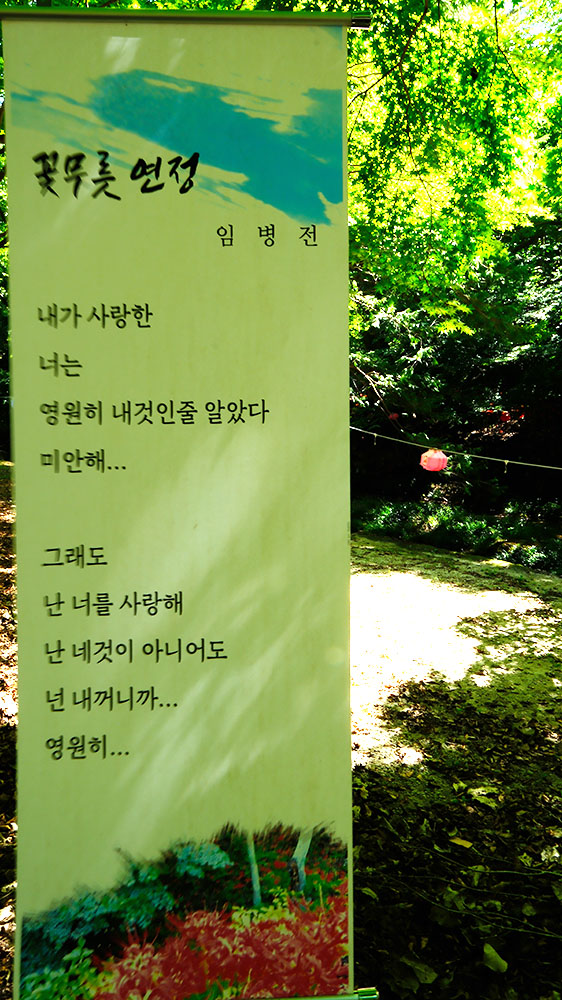 꽃무릇 연정
임 병 전
내가 사랑한
너는
영원히 내것인줄 알았다
미안해...
그래도
난 너를 사랑해
난 네것이 아니어도
넌 내꺼니까...
영원히...